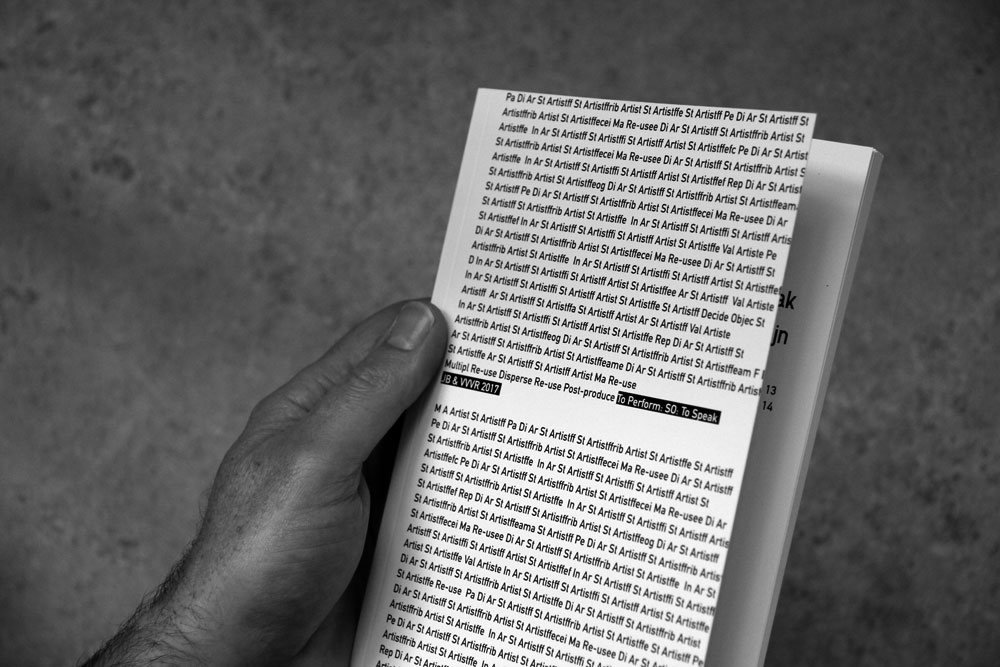 Pa Di Ar St Artistff St Artistffrib Artist St Artistffe St Artistff Pe Di Ar St Artistff St
Artistffrib Artist St Artistffecei Ma Re-usee Di Ar St Artistff St Artistffrib Artist St
Artistffe In Ar St Artistff St Artistffi St Artistff Artist St Artistffefc Pe Di Ar St Artist
St Artistffrib Artist St Artistffecei Ma Re-usee Di Ar St Artistff St Artistffrib Artist S
Artistffe In Ar St Artistff St Artistffi St Artistff Artist St Artistffef Rep Di Ar St Artist
St Artistffrib Artist St Artistffeog Di Ar St Artistff St Artistffrib Artist St Artistffeam
St Artistff Pe Di Ar St Artistff St Artistffrib Artist St Artistffecei Ma Re-usee Di Ar
St Artistff St Artistffrib Artist St Artistffe In Ar St Artistff St Artistffi St Artistff Artis
St Artistffef In Ar St Artistff St Artistffi St Artistff Artist St Artistffe Val Artiste Pe
Di Ar St Artistff St Artistffrib Artist St Artistffecei Ma Re-usee Di Ar St Artistff St
Artistffrib Artist St Artistffe In Ar St Artistff St Artistffi St Artistff Artist St Artistffef
D In Ar St Artistff St Artistffi St Artistff Artist St Artistffee Ar St Artistff Val Artiste
In Ar St Artistff St Artistffi St Artistff Artist St Artistffe St Artistff Decide Objec St
Artistff Ar St Artistff St Artistffa St Artistff Artist Ar St Artistff Val Artiste
In Ar St Artistff St Artistffi St Artistff Artist St Artistffe Rep Di Ar St Artistff St
Artistffrib Artist St Artistffeog Di Ar St Artistff St Artistffrib Artist St Artistffeam F
Ar St Artistff St Artistffrib Artist St Artistffeame Di Ar St Artistff St Artistffrib Artist
St Artistffe Ar St Artistff St Artistff Artist Ma Re-use
Multipl Re-use Disperse Re-use Post-produce To Perform: SO: To Speak
JB & VVVR 2017
M A Artist St Artistff Pa Di Ar St Artistff St Artistffrib Artist St Artistffe St Artistff
Pe Di Ar St Artistff St Artistffrib Artist St Artistffecei Ma Re-usee Di Ar St Artistff
St Artistffrib Artist St Artistffe In Ar St Artistff St Artistffi St Artistff Artist St
Artistffefc Pe Di Ar St Artistff St Artistffrib Artist St Artistffecei Ma Re-usee Di Ar
St Artistff St Artistffrib Artist St Artistffe In Ar St Artistff St Artistffi St Artistff Artis
St Artistffef Rep Di Ar St Artistff St Artistffrib Artist St Artistffeog Di Ar St Artistff
St Artistffrib Artist St Artistffeama St Artistff Pe Di Ar St Artistff St Artistffrib Artist
St Artistffecei Ma Re-usee Di Ar St Artistff St Artistffrib Artist St Artistffe In Ar St
Artistff St Artistffi St Artistff Artist St Artistffef In Ar St Artistff St Artistffi St Artistff
Artist St Artistffe Val Artiste In Ar St Artistff St Artistffi St Artistff Artist St Artistffe
Di Ar St Artistff St Artistffrib Artist St Artistffe Di Ar St Artistff St Artistffrib Artist
St Artistffe Re-use Pa Di Ar St Artistff St Artistffrib Artist St Artistffe St Artistff Pe
Di Ar St Artistff St Artistffrib Artist St Artistffecei Ma Re-usee Di Ar St Artistff St
Artistffrib Artist St Artistffe In Ar St Artistff St Artistffi St Artistff Artist
Pe Di Ar St Artistff St Artistffrib Artist St
Artistffrib Artist St Artistffe In
Rep Di Ar St Artistff
ak
jn
13
14